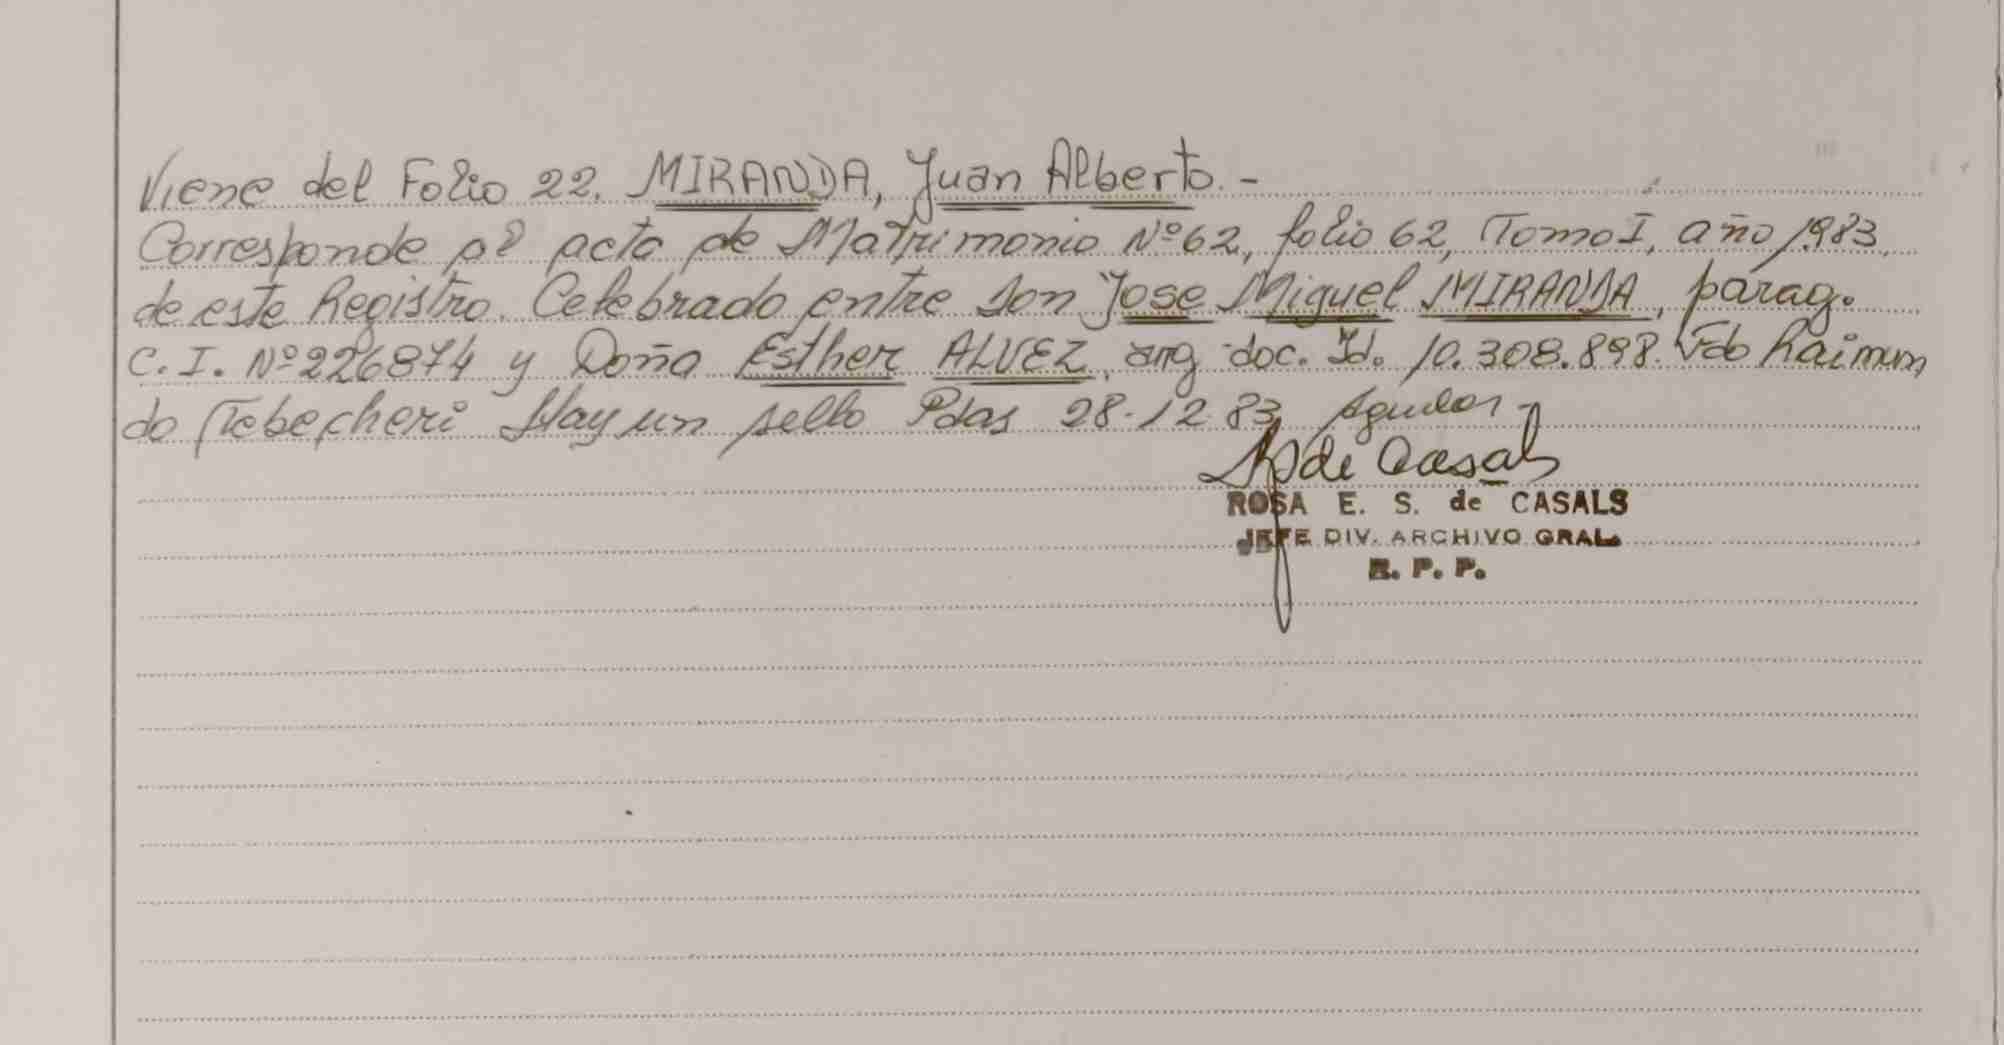 Viene del Folio 22. MIRANDA, Juan Alberto. -
Corresponde al acta de Matrimonio Nº 62, folio 62, Tomo I, año 1983,
de este Registro. Celebrado entre Don Jose Miguel MIRANDA, parag.
C. I. Nº 226874 y Doña Esther ALVEZ, arg doc. Id. 10.308.898. Fdo Raimun
do Hay un sello Pdas 28-12-83
de Casals
ROSA E. S. de CASALS
JEFE DIV. ARCHIVO GRAL.
R. P. P.